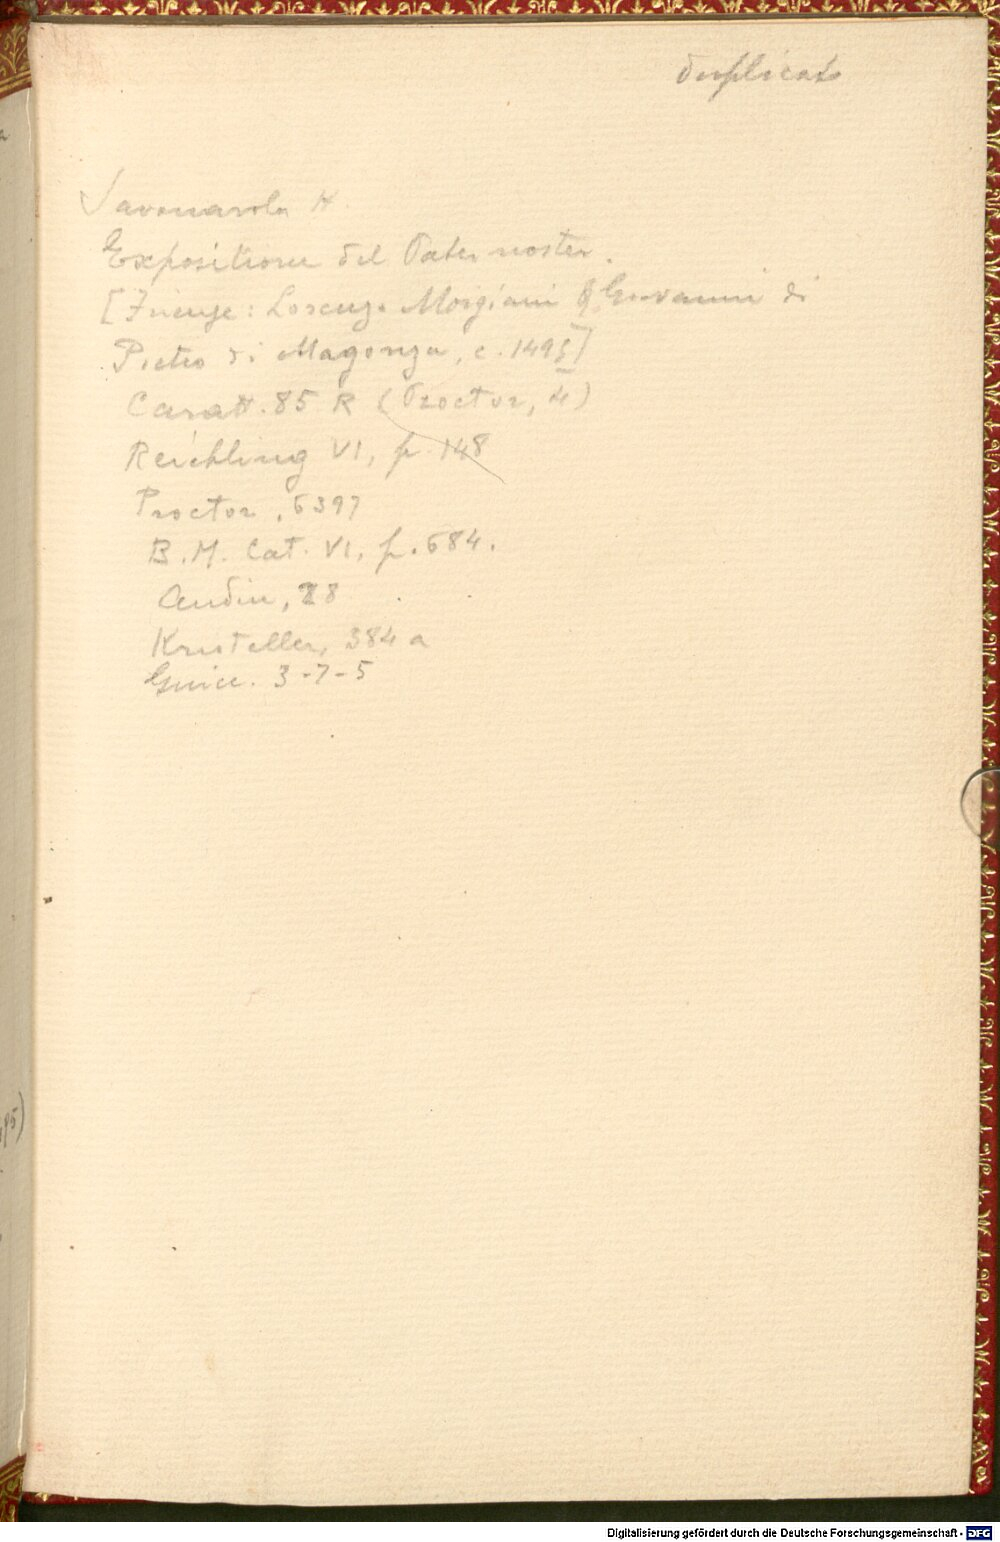 duplicato
Savonarola H
Expositione del Pater noster.
[Firenze: Lorenzo Morgiani & Giovanni di
Pietro di Magonza, c. 1495]
Caratt. 85 R (Proctor, 4)
Reichling VI, p. 148
Proctor, 6397
B.M. Cat. VI, p. 684.
Audin, 28
Kristeller, 384 a
Guicc. 3-7-5
Digitalisierung gefördert durch die Deutsche Forschungsgemeinschaft - DFG